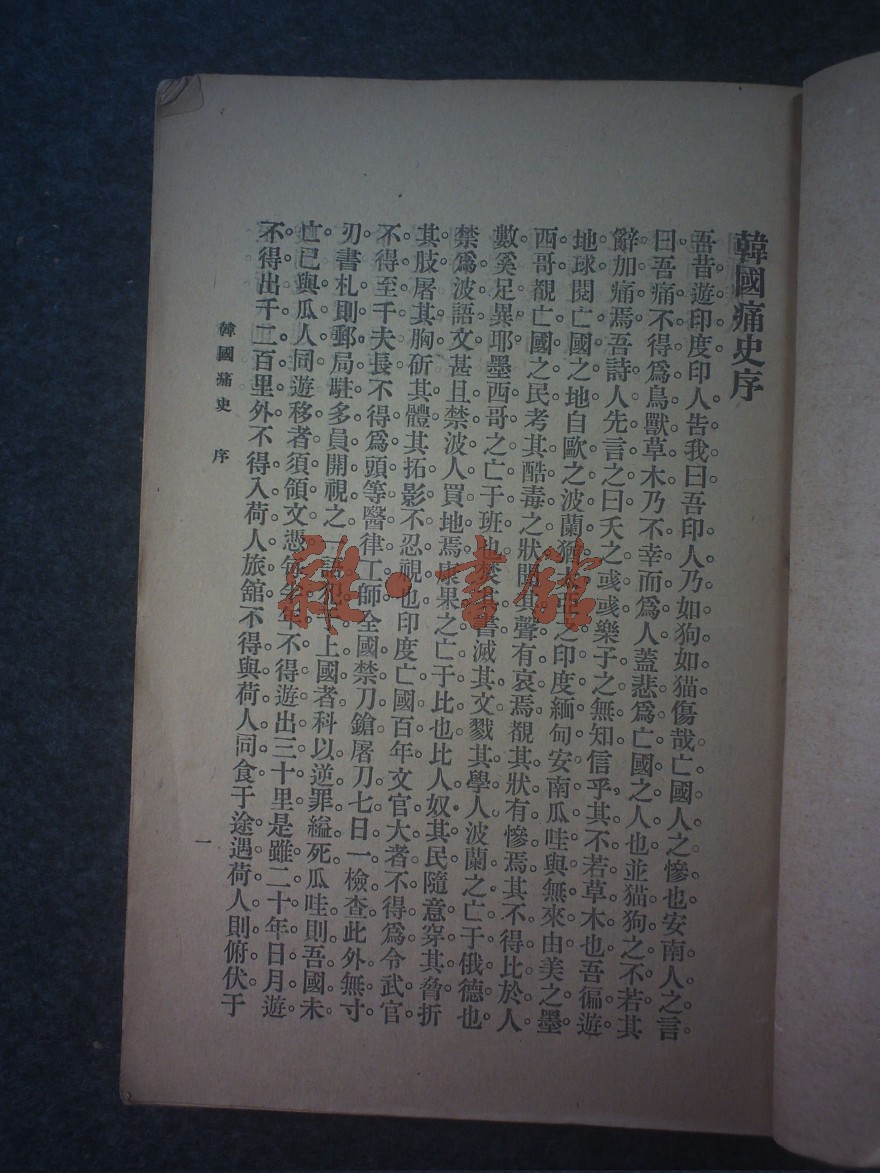 韓國痛史序
吾昔遊印度印人告我曰吾印人乃如狗如猫傷哉亡國人之慘也安南人之言
曰吾痛不得爲鳥獸草木乃不幸而爲人蓋悲爲亡國之人也並猫狗之不若其
辭加痛焉吾詩人先言之曰夭之彧彧樂子之無知信乎其不若草木也吾徧遊
地球閱亡國之地自歐之波蘭猶太亞之印度緬甸安南瓜哇與無來由美之墨
西哥覩亡國之民考其酷毒之狀聞其聲有哀焉覩其狀有慘焉其不得比於人
數奚足異耶墨西哥之亡于班也焚其書滅其文戮其學人波蘭之亡于俄德也
禁爲波語文甚且禁波人買地焉康果之亡于比也比人奴其民隨意穿其脅折
其肢屠其胸斫其體其拓影不忍視也印度亡國百年文官大者不得爲令武官
不得至千夫長不得爲頭等醫律工師全國禁刀鎗屠刀七日一檢查此外無寸
刃書札則郵局駐多員開視之一語犯上國者科以逆罪縊死瓜哇則吾國未
亡已與瓜人同遊移者須領文憑不得遊出三十里是雖二十年日月遊
不得出千二百里外不得入荷人旅舘不得與荷人同食于途遇荷人則俯伏于
韓國痛史 序
一
雜·書舘